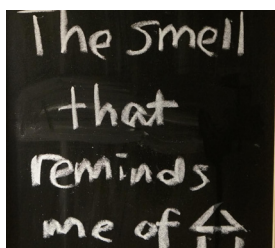 The smell
that
reminds
me of